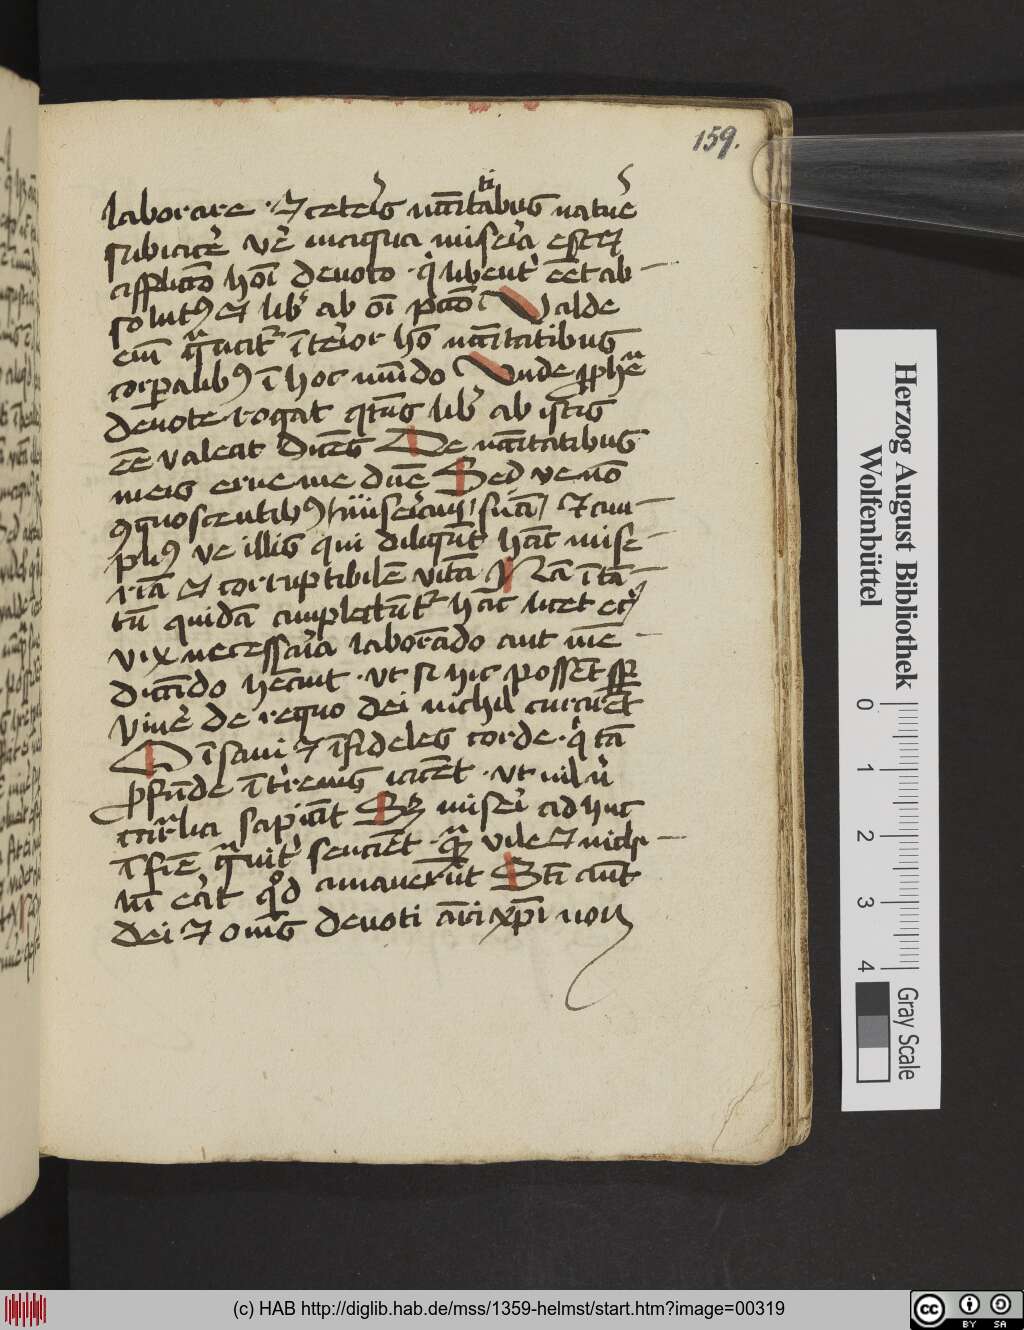 159.
laborare · ⁊ ceteris nccitatibus nature
subiacere ver magna miseria est et
afflictio hoi deuoto · qi libent eet ab-
solutus et lib ab oi pcco Valde
eni grauat iterior ho nccitatibus
corpalibus i hoc mundo Vnde ppheta
deuote rogat qtnus liber ab istis
ee valeat dicens De nccitatibus
meis erue me dne Sed ve non
cognoscentibus miseriam suam ⁊ am-
plius ve illis qui diligunt hanc mise-
riam et corruptibilem vitam Nam intan-
tum quidam amplectuntur hanc licet etiam
vix necessaria laborando aut men-
dicando habeant · ut si hic possent semper
viuere de regno dei nichil curarent
O insani ⁊ infideles corde · qui tam
profunde in terrenis iacent · ut nil nisi
carnalia sapiant Sed miseri adhuc
in fine grauiter sencient · quam vile et nichi-
lum erat quod amauerunt Sancti autem
dei ⁊ omnes deuoti amici xpi non
Herzog August Bibliothek
Wolfenbüttel
0 1 2 3 4
Gray Scale
(c) HAB http://diglib.hab.de/mss/1359-helmst/start.htm?image=00319
cc BY SA